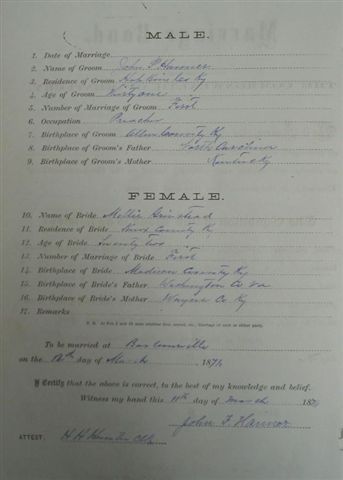 MALE.
1. Date of Marriage
2. Name of Groom John F Hannor
3. Residence of Groom Ky
4. Age of Groom Thirty one
5. Number of Marriage of Groom First
6. Occupation Preacher
7. Birthplace of Groom Allen County Ky
8. Birthplace of Groom's Father North Carolina
9. Birthplace of Groom's Mother Kentucky
FEMALE.
10. Name of Bride Mollie Grinstead
11. Residence of Bride Knox County Ky
12. Age of Bride Twenty two
13. Number of Marriage of Bride First
14. Birthplace of Bride Madison County Ky
15. Birthplace of Bride's Father Washington Co Va
16. Birthplace of Bride's Mother Wayne Co Ky
17. Remarks
To be married at Barbourville
on the day of March 187
I Certify that the above is correct, to the best of my knowledge and belief.
Witness my hand this 11th day of March 187
John F Hannor
ATTEST: H H Clk